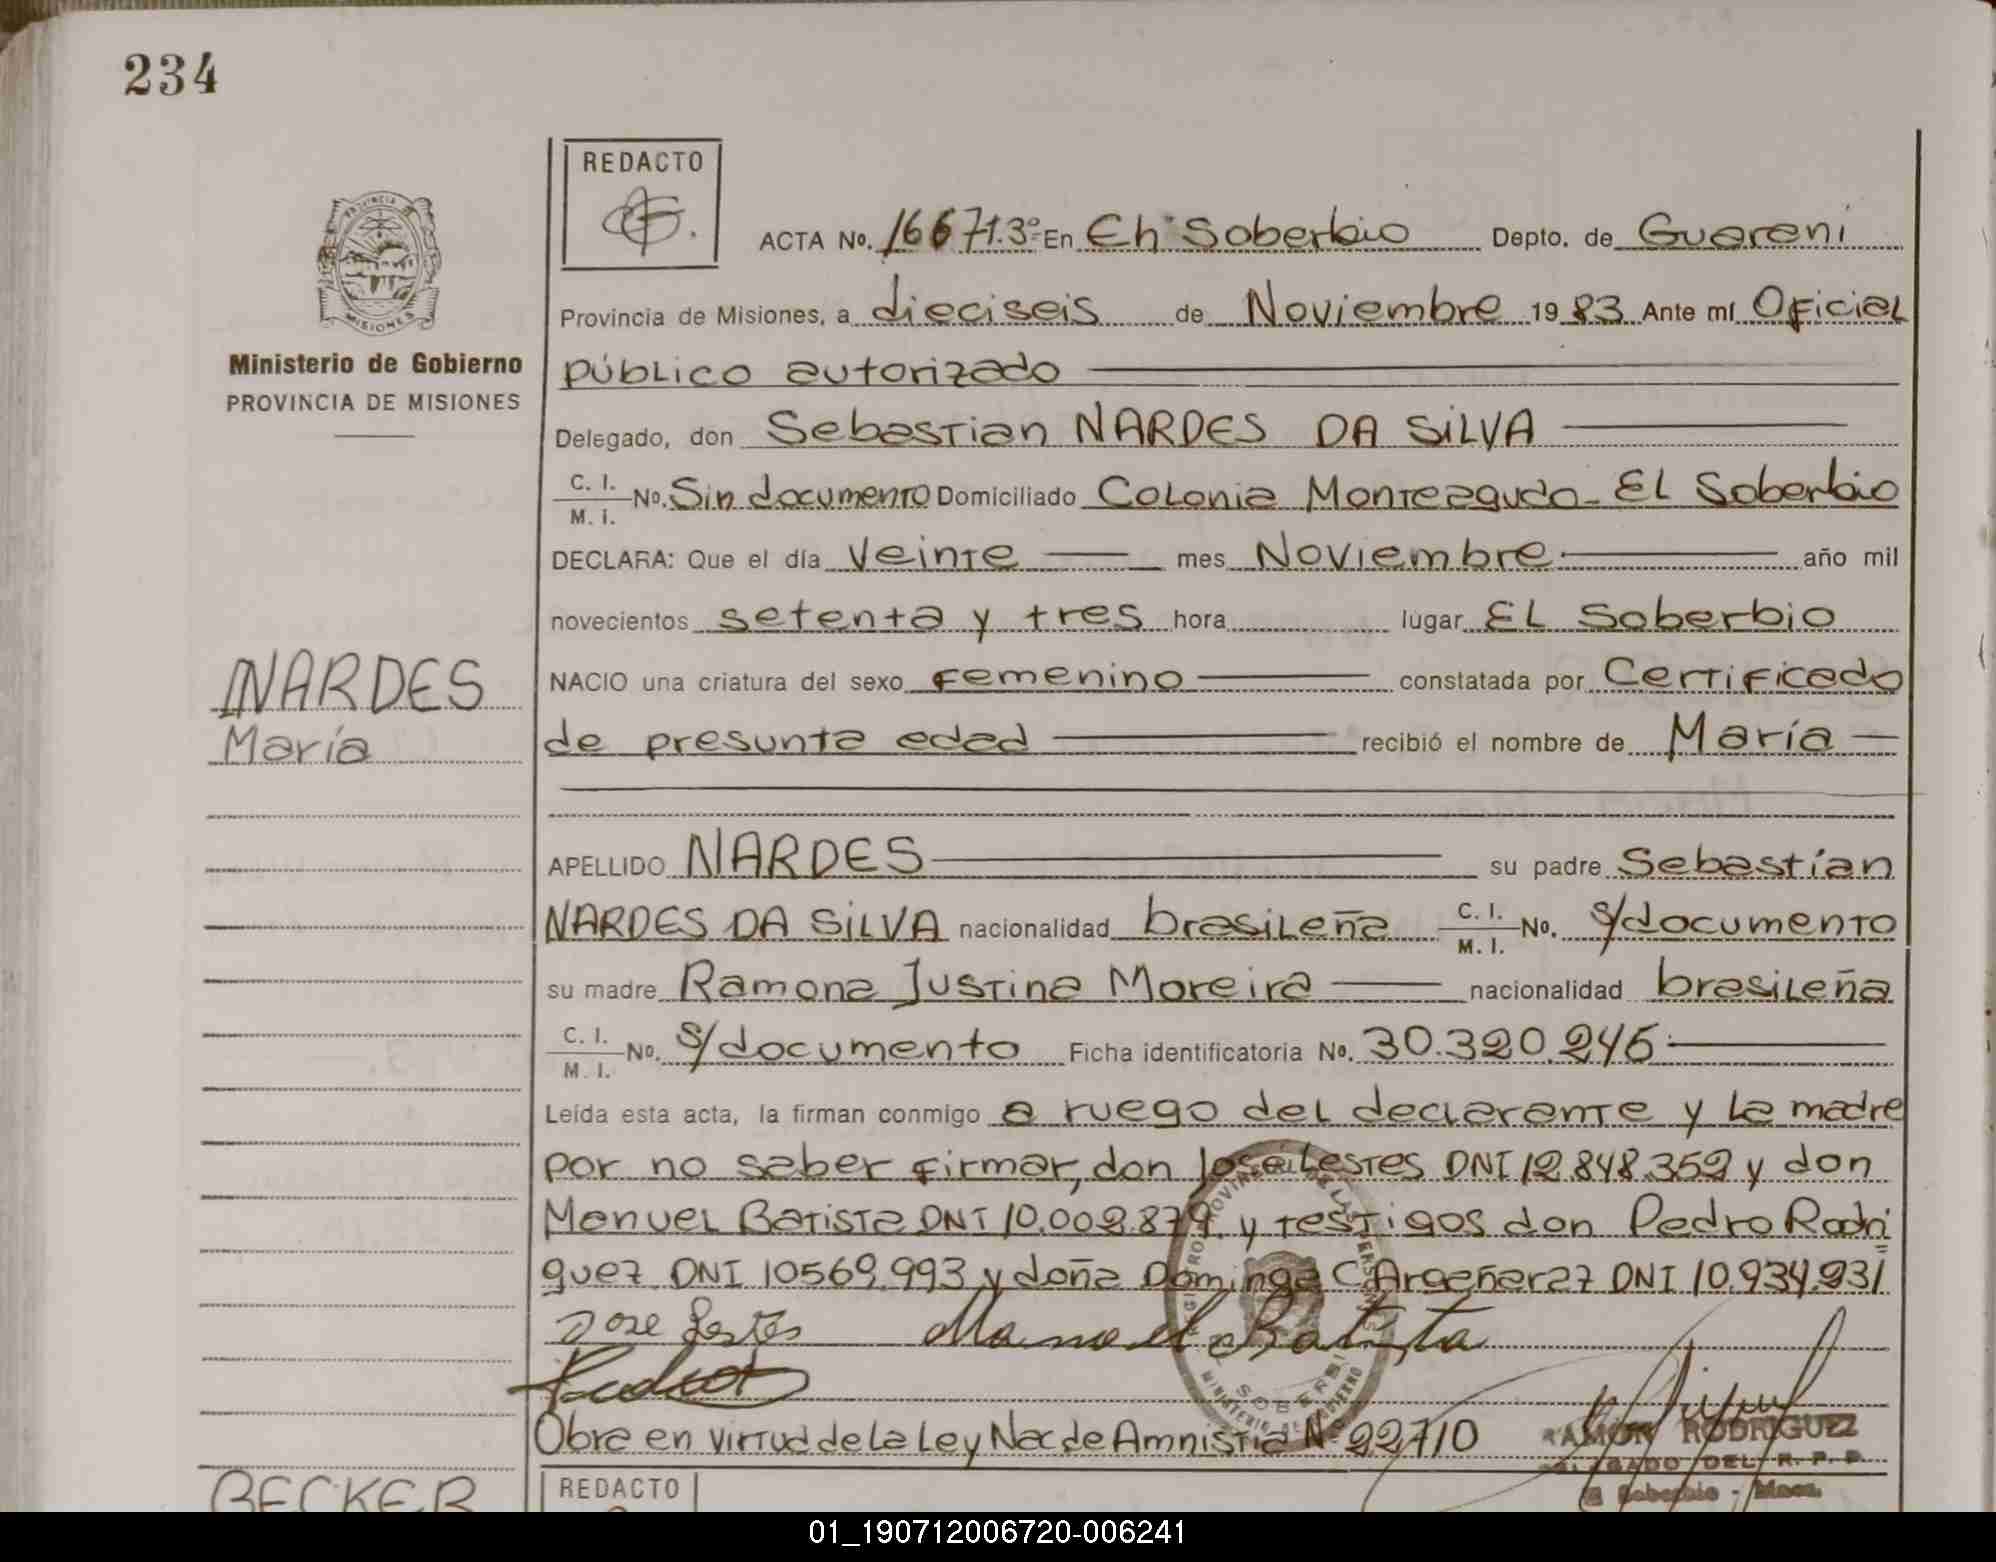 234
REDACTO
PROVINCIA
MISIONES
Ministerio de Gobierno
PROVINCIA DE MISIONES
ACTA No. 16671.3º En El Soberbio Depto. de Guarani
Provincia de Misiones, a dieciseis de Noviembre 1983 Ante mí Oficial
público autorizado
Delegado, don Sebastian NARDES DA SILVA
C. I. / M. I. No. Sin documento Domiciliado Colonia Monteagudo - El Soberbio
DECLARA: Que el día Veinte mes Noviembre año mil
novecientos setenta y tres hora lugar El Soberbio
NACIO una criatura del sexo Femenino constatada por Certificado
de presunta edad recibió el nombre de María
NARDES
María
APELLIDO NARDES su padre Sebastían
NARDES DA SILVA nacionalidad brasileña C. I. / M. I. No. s/documento
su madre Ramona Justina Moreira nacionalidad brasileña
C. I. / M. I. No. s/documento Ficha identificatoria No. 30.320.246
Leída esta acta, la firman conmigo a ruego del declarante y la madre
por no saber firmar, don Jose Lestes DNI 12.848.352 y don
Manuel Batista DNI 10.002.879 y testigos don Pedro Rodri
guez DNI 10569.993 y doña Dominga C. Argeñaraz DNI 10.934.931
Jose Lestes Manoel Batista
Obra en virtud de la Ley Nac de Amnistia Nº 22710
RAMON RODRIGUEZ
DELEGADO DEL R. P. P.
El Soberbio - Mnes.
BECKER
REDACTO
01_190712006720-006241